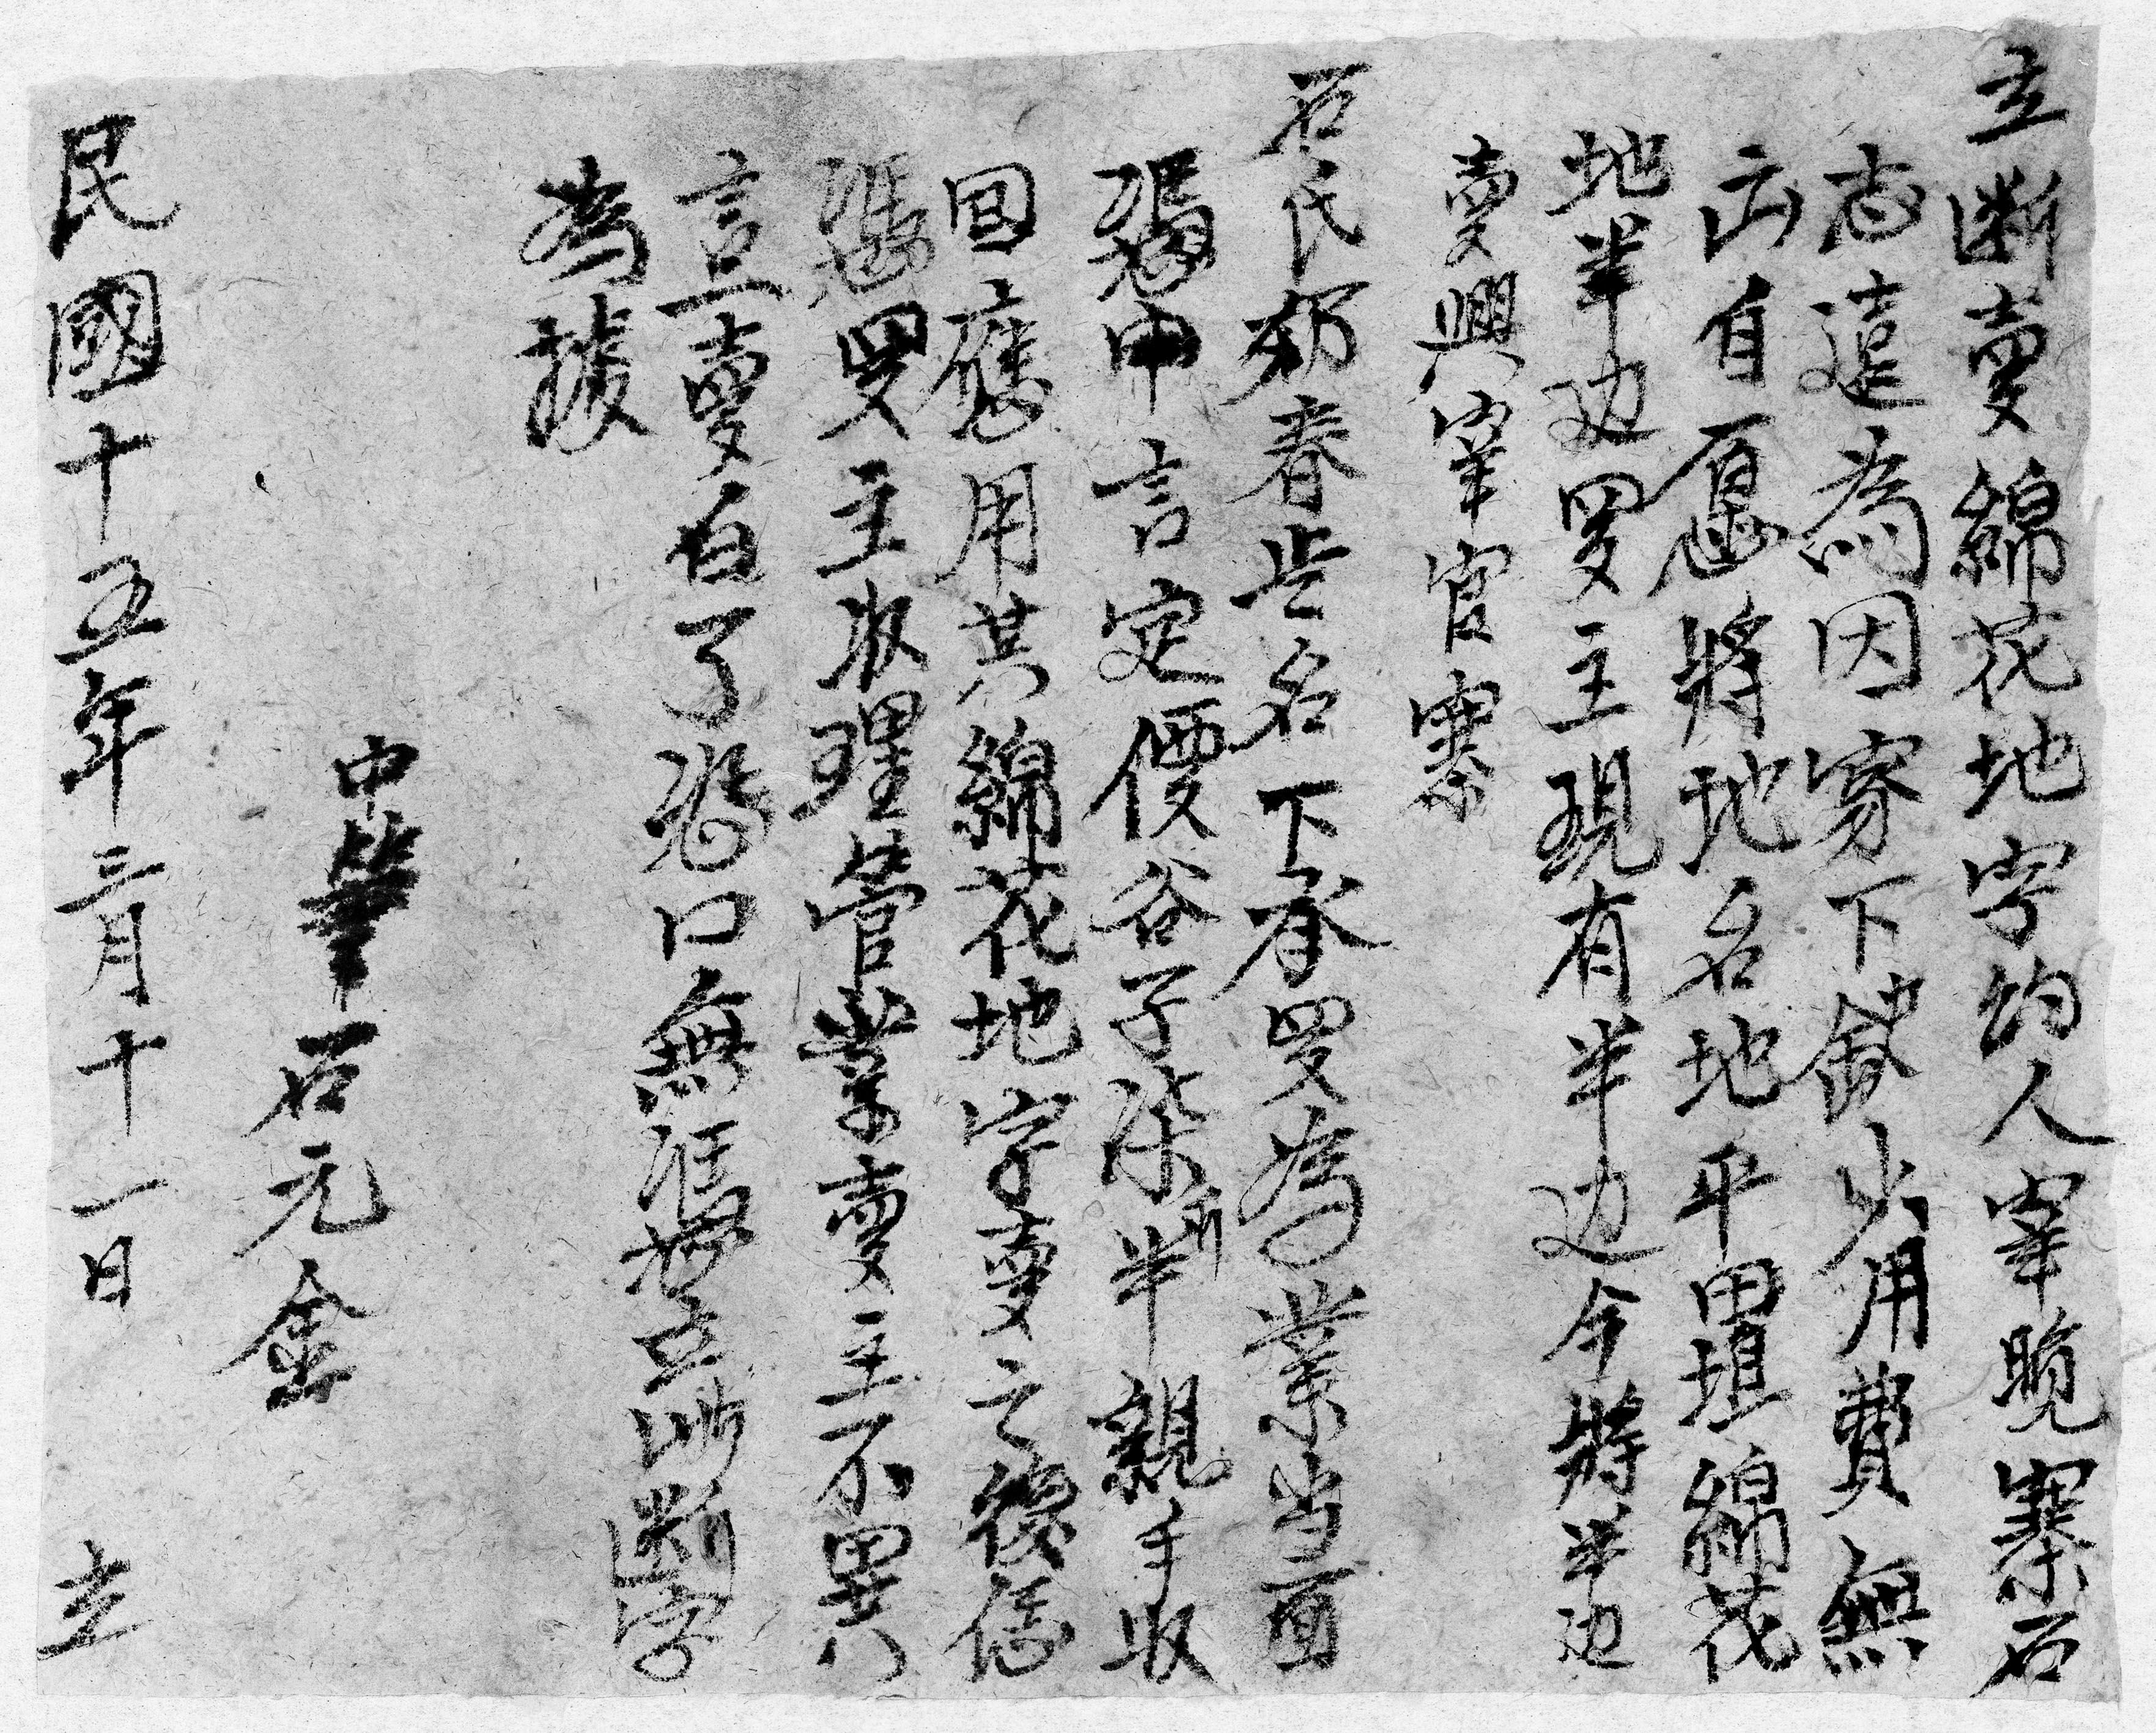 立断賣綿花地字約人寨晚寨石
志遠為因家下缺少用費無
出自愿將地名地平田埧綿花
地半边買主現有半边今將半边
賣與寨官寨
石氏奶春些名下承買為業当面
憑中言定價谷子柒半親手收
回應用其綿花地字賣之後凴
憑買主收理管業賣主不異
言立賣白了恐口無凴立此断字
為據
中筆石元金
民國十五年三月十一日 立